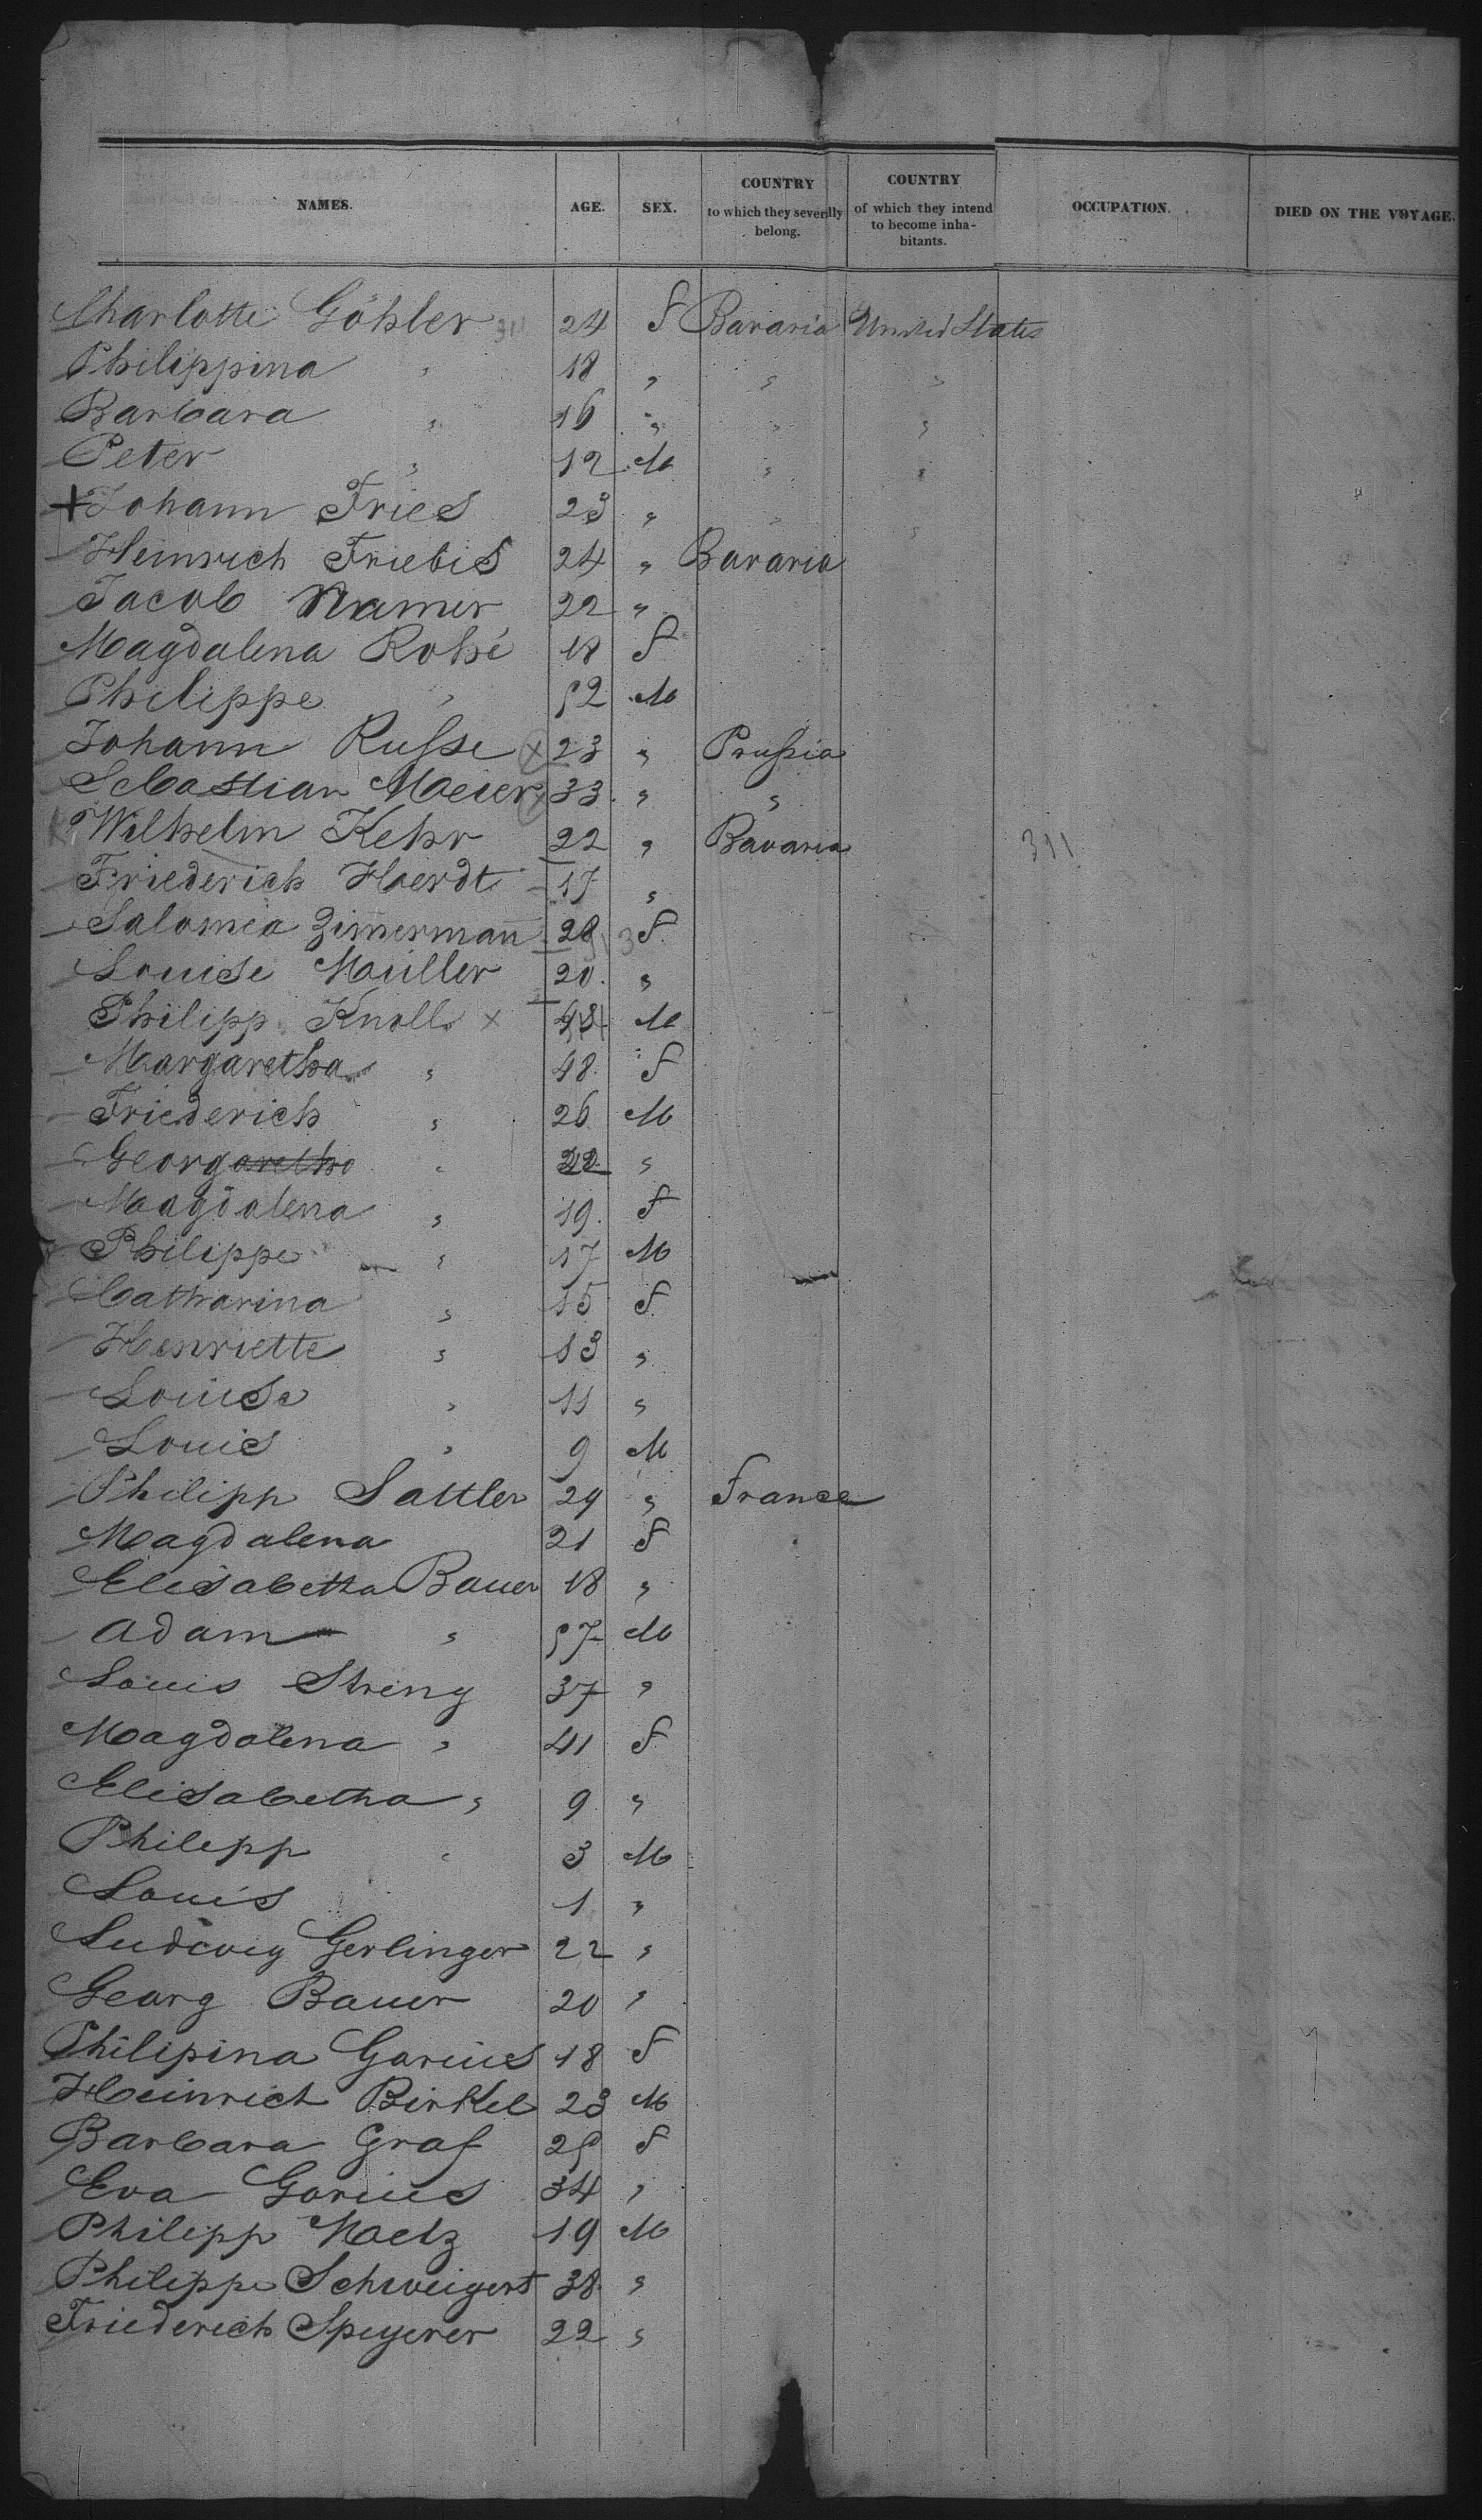 NAMES. AGE. SEX. COUNTRY to which they severilly belong. COUNTRY of which they intend to become inha-bitants. OCCUPATION. DIED ON THE VOYAGE.
Charlotte Göhler 311 24 f Bavaria United States
Philippina " 18 " " "
Barbara " 16 " " "
Peter " 12 M " "
+ Johann Fries 23 " " "
Heinrich Friebis 24 " Bavaria
Jacob Namer 22 "
Magdalena Rohé 18 f
Philippe " 52 M
Johann Russe x 23 " Prussia
Sebastian Meier x 33 " "
Wilhelm Kehr 22 " Bavaria 311
Friederich Hoerdt 17 "
Salomea Zimermann 28 f
Louise Müller 20 "
Philipp Knoll x M
Margaretha " 48 f
Friederich " 26 M
Georgaretha " 22 "
Magdalena " 19 f
Philippe " 17 M
Catharina " 15 f
Henriette " 13 "
Louise " 11 "
Louis " 9 M
Philipp Sattler 29 " France
Magdalena 21 f
Elisabetha Bauer 18 "
Adam " 57 M
Louis Streng 37 "
Magdalena " 41 f
Elisabetha " 9 "
Philipp " 3 M
Louis 1 "
Ludwig Gerlinger 22 "
Georg Bauer 20 "
Philipina Garius 18 f
Heinrich Birkel 23 M
Barbara Graf 25 f
Eva Garius 34 "
Philipp Metz 19 M
Philippe Schweigert 38 "
Friederich Speyerer 22 "